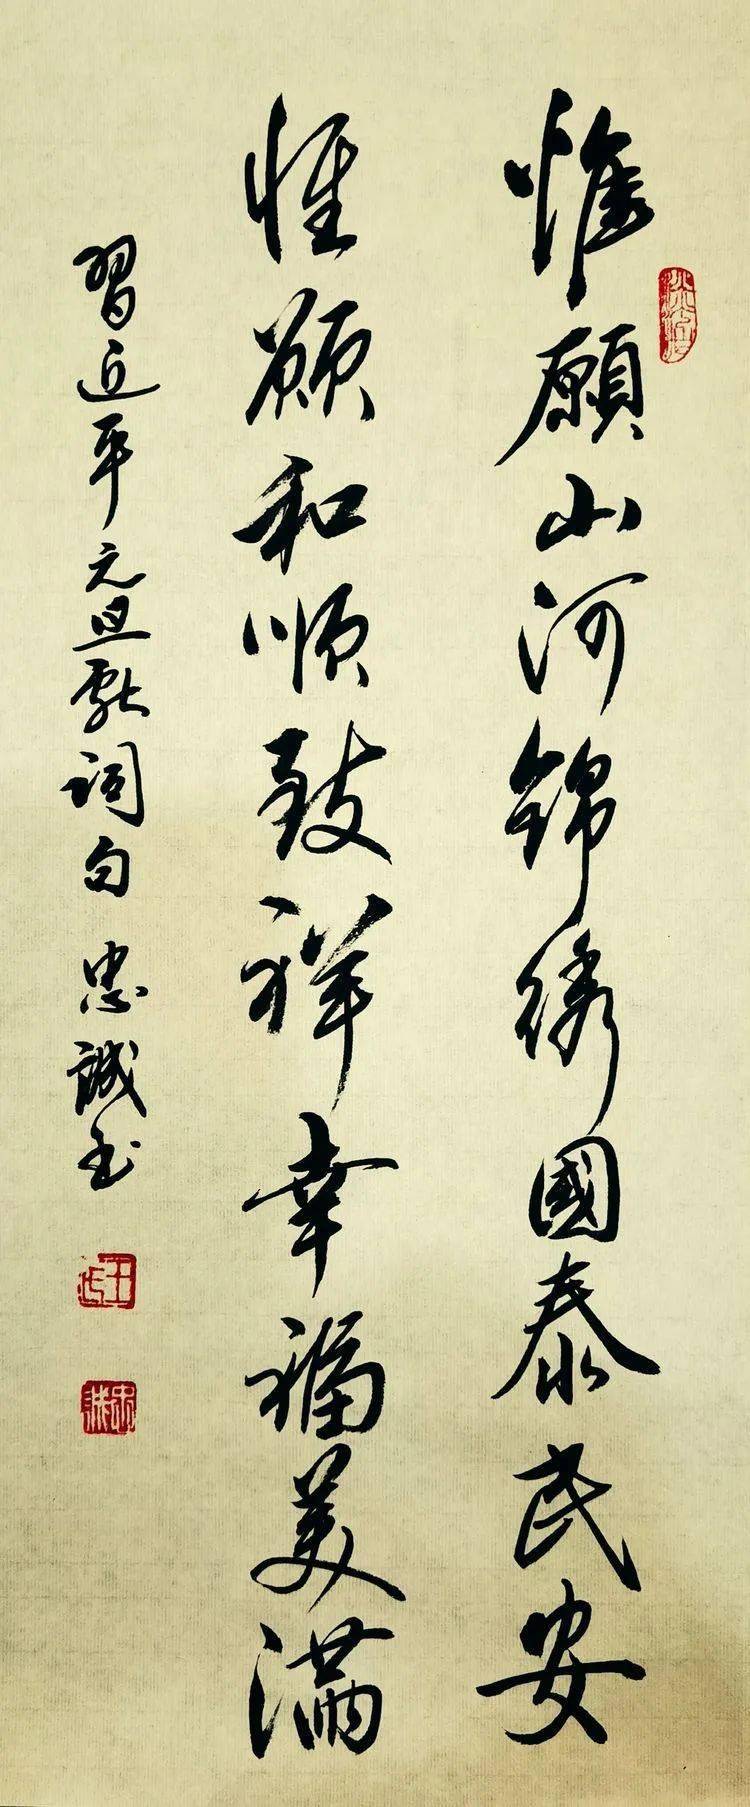 惟願山河錦繡國泰民安
惟願和順致祥幸福美滿
習近平元旦獻詞句 忠誠書